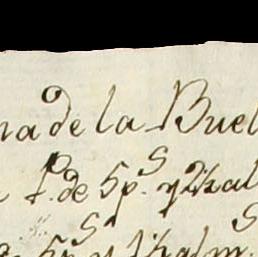 na de la Buel
P. de 5 p.s y 2½ al
5 p.s y 1½ alm.s